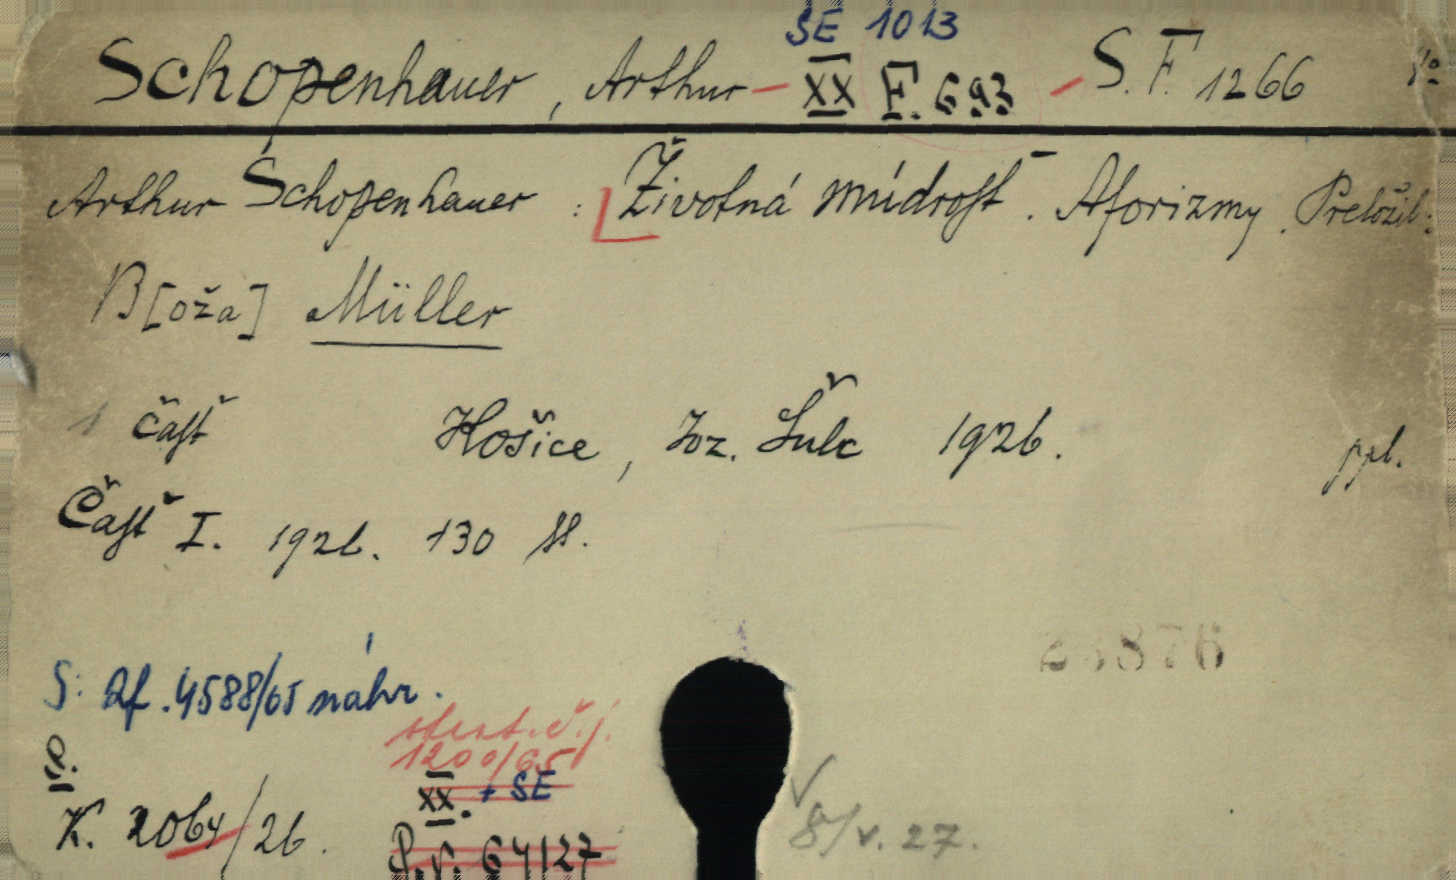 SE 1013
Schopenhauer, Arthur – XX F. 693 – S.F. 1266
Arthur Schopenhauer : Životná múdrosť. Aforizmy. Preložil:
B[oža] Müller
1 časť Hošice, Joz. Šulc 1926. ppl.
Časť I. 1926. 130 ss.
23876
S: Af. 4588/65 náhr.
č.j.
1200/65
P.
XX. + SE
K. 2064/26.
P.V. 64/27
8/V. 27.